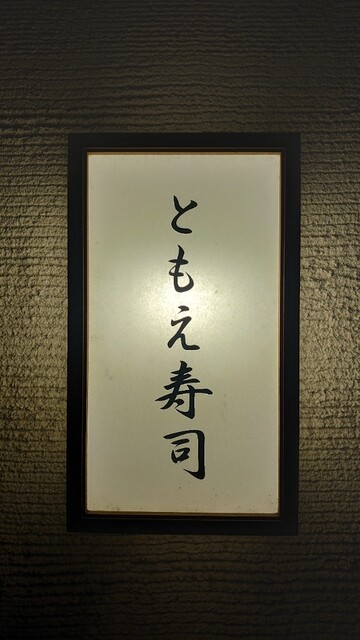 ともえ寿司